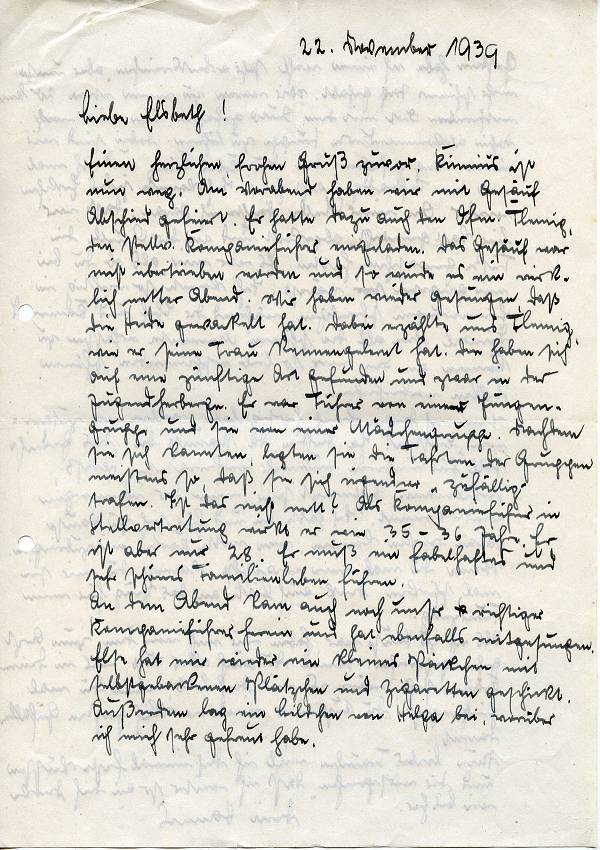 22. November 1939
Liebe Elsbeth!
Einen herzlichen, frohen Gruß zuvor. ist
nun weg. Am Vorabend haben wir mit Gesäuf
Abschied gefeiert. Er hatte dazu auch den
den stellv. Kompanieführer eingeladen. Das Gesäuf war
nicht übertrieben worden und so wurde es ein wirk-
lich netter Abend. Wir haben wieder gesungen, daß
die Heide gewackelt hat. Dabei erzählte uns
wie er seine Frau kennengelernt hat. Die haben sich
auf eine zünftige Art gefunden und zwar in der
Jugendherberge. Er war Führer von einer Jungen-
gruppe und sie von einer Mädchengruppe. Nachdem
sie sich kannten, legten sie die Fahrten der Gruppen
meistens so, daß sie sich irgendwo „zufällig"
trafen. Ist das nicht nett? Als Kompanieführer in
Stellvertretung wirkt er wie 35-36 Jahre. Er
ist aber nur 28. Er muß ein fabelhaftes und
sehr schönes Familienleben führen.
An dem Abend kam auch noch unser richtiger
Kompanieführer herein und hat ebenfalls mitgesungen.
Else hat mir wieder ein kleines Päckchen mit
selbstgebackenen Plätzchen und Zigaretten geschickt.
Außerdem lag ein Bildchen von Helga bei, worüber
ich mich sehr gefreut habe.